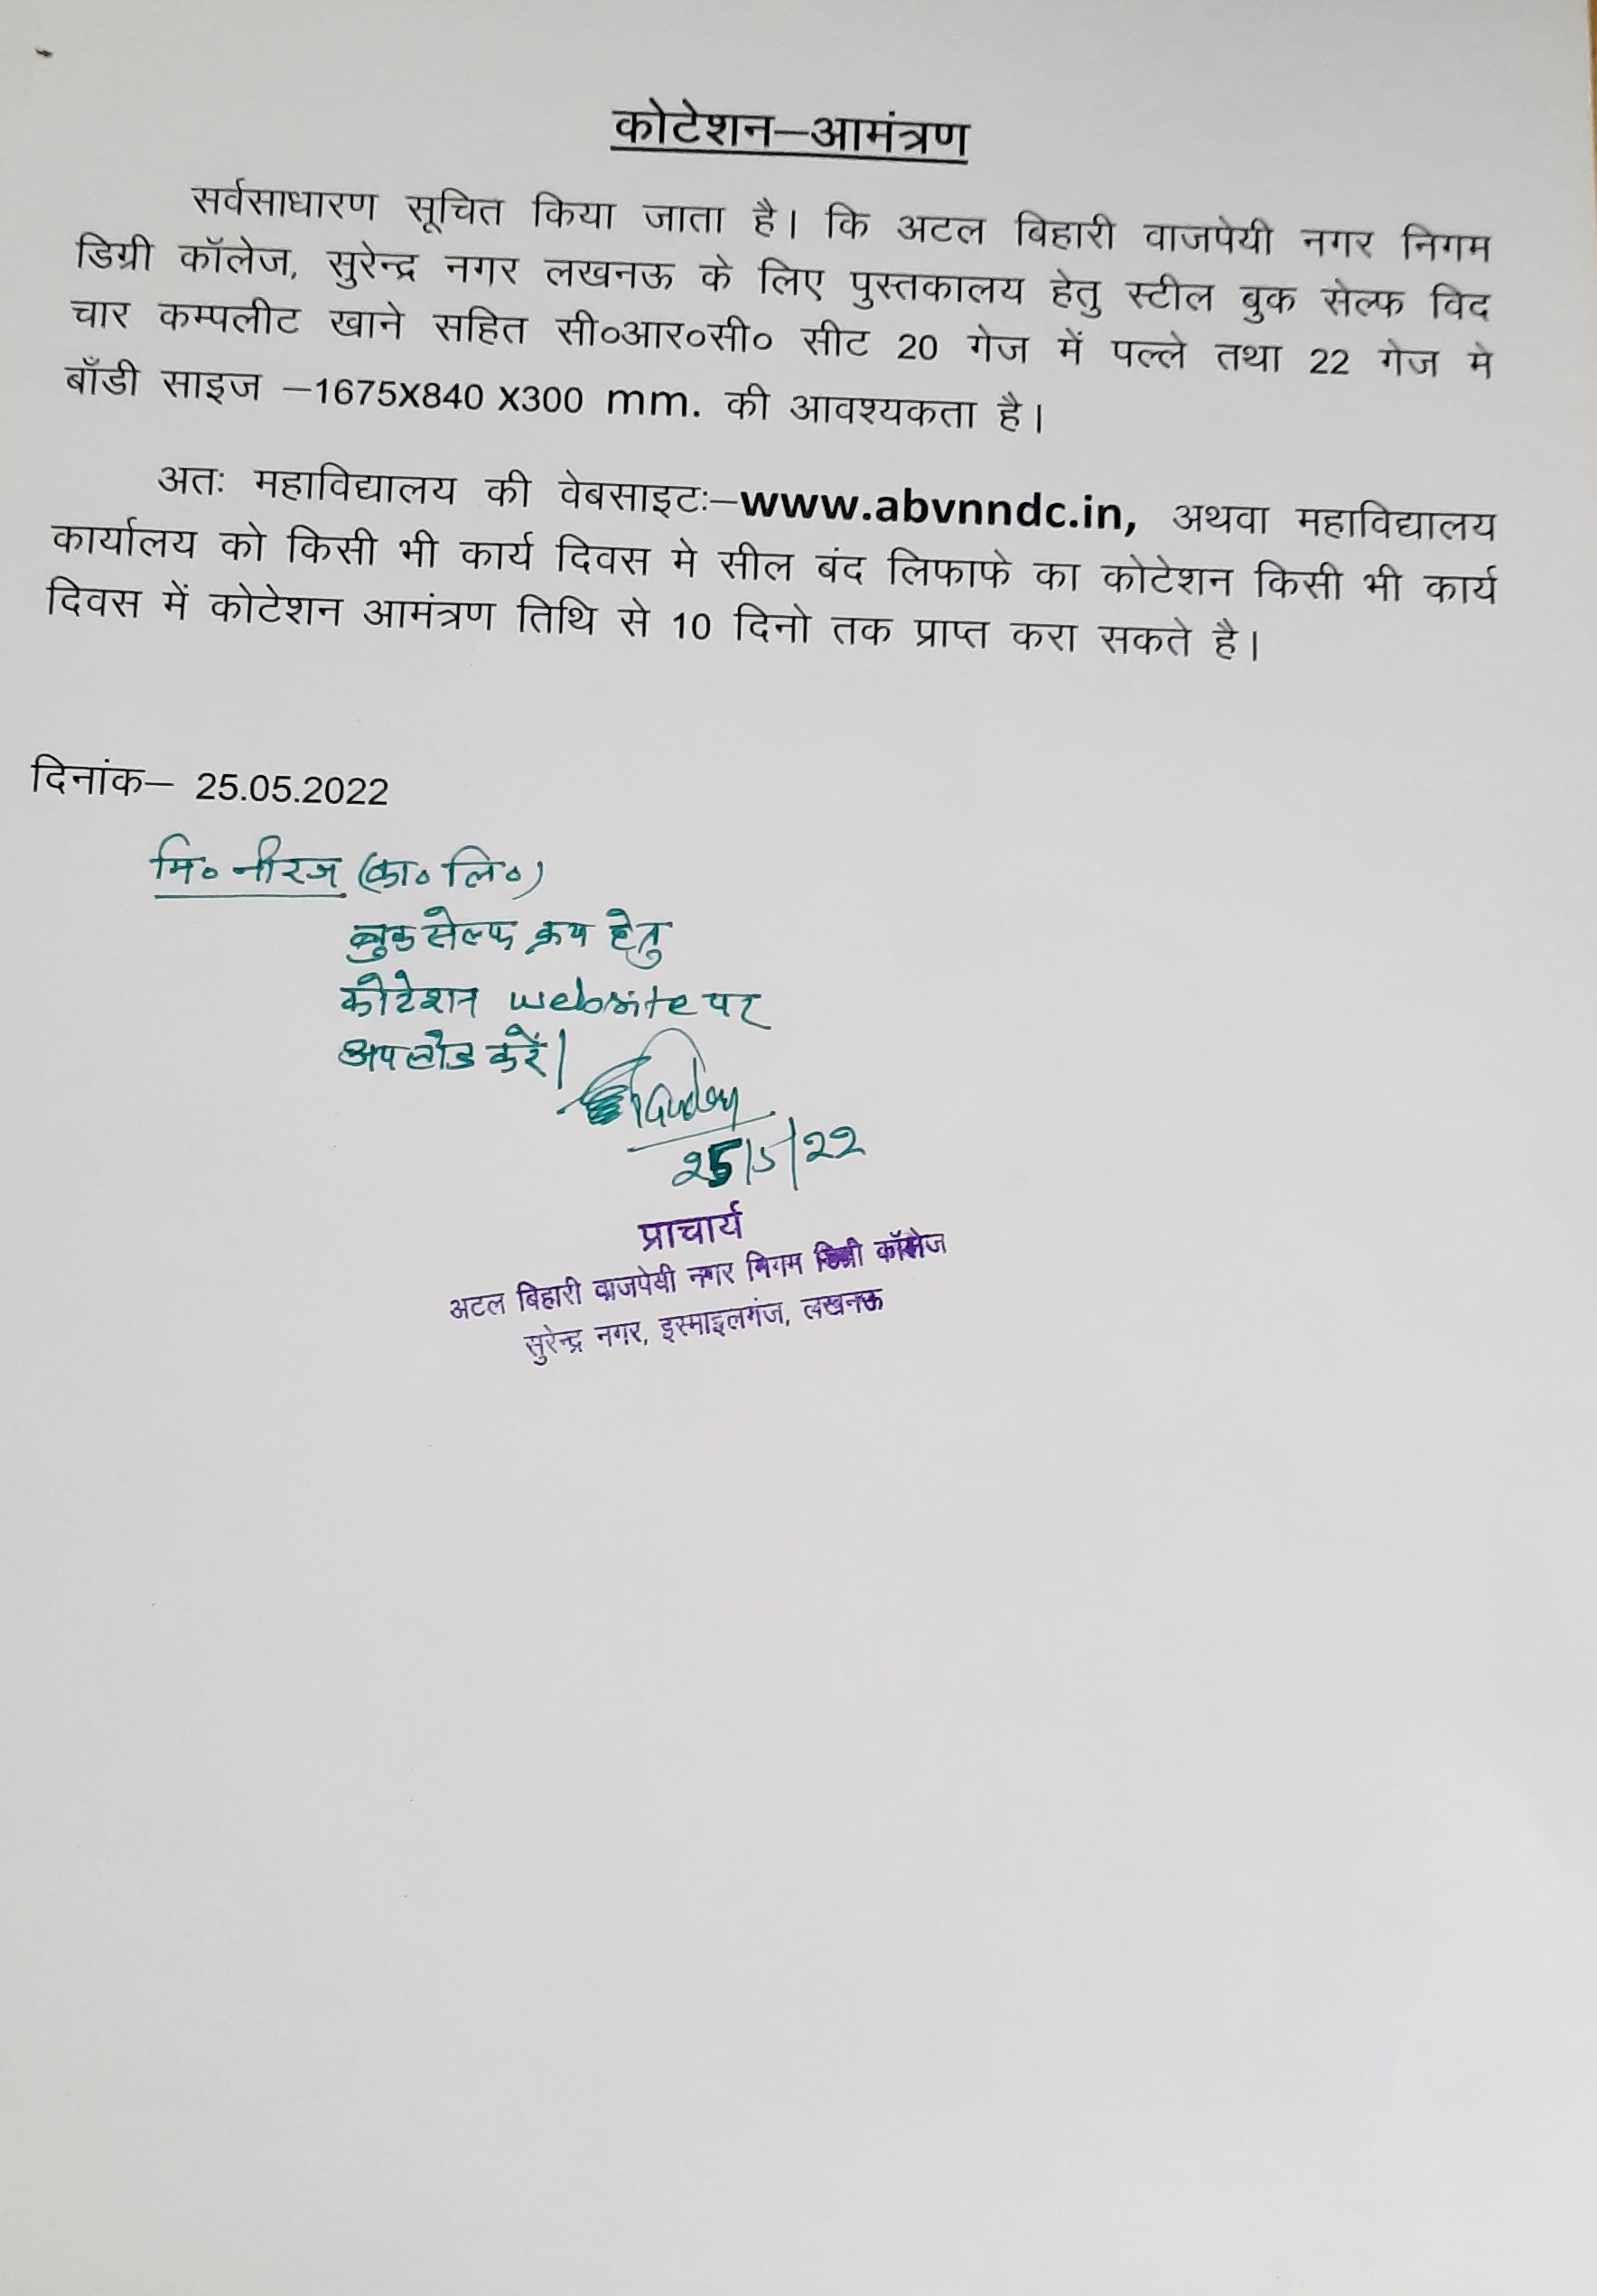 कोटेशन–आमंत्रण
सर्वसाधारण सूचित किया जाता है। कि अटल बिहारी वाजपेयी नगर निगम
डिग्री कॉलेज, सुरेन्द्र नगर लखनऊ के लिए पुस्तकालय हेतु स्टील बुक सेल्फ विद
चार कम्पलीट खाने सहित सी०आर०सी० सीट 20 गेज में पल्ले तथा 22 गेज मे
बॉंडी साइज –1675X840 X300 mm. की आवश्यकता है।
अतः महाविद्यालय की वेबसाइटः–www.abvnndc.in, अथवा महाविद्यालय
कार्यालय को किसी भी कार्य दिवस मे सील बंद लिफाफे का कोटेशन किसी भी कार्य
दिवस में कोटेशन आमंत्रण तिथि से 10 दिनो तक प्राप्त करा सकते है।
दिनांक– 25.05.2022
मि० नीरज (का० लि०)
बुक सेल्फ क्रय हेतु
कोटेशन website पर
अपलोड करें।
25/5/22
प्राचार्य
अटल बिहारी वाजपेयी नगर निगम डिग्री कॉलेज
सुरेन्द्र नगर, इस्माइलगंज, लखनऊ